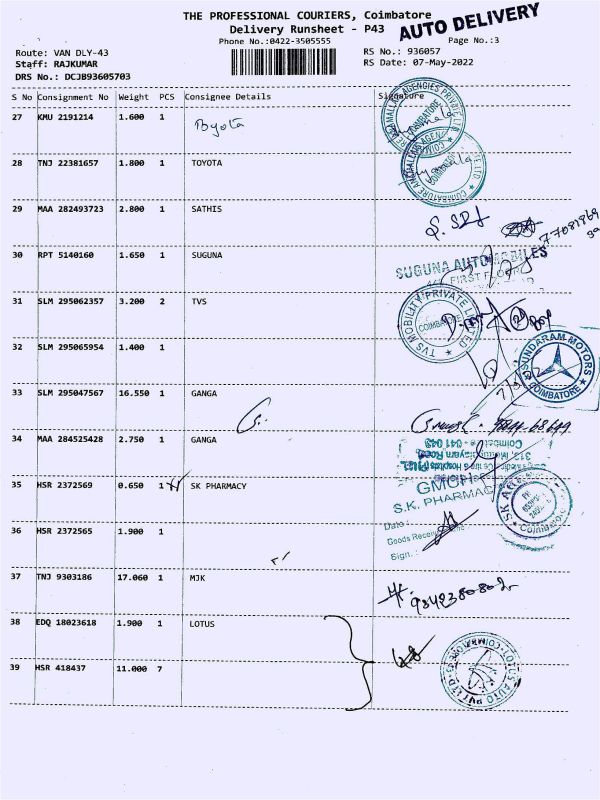 THE PROFESSIONAL COURIERS, Coimbatore
Delivery Runsheet - P43
AUTO DELIVERY
Phone No.:0422-3505555
Page No.:3
Route: VAN DLY-43
RS No.: 936057
Staff: RAJKUMAR
RS Date: 07-May-2022
DRS No.: DCJB93605703
S No Consignment No Weight PCS Consignee Details Signature
27 KMU 2191214 1.600 1
28 TNJ 22381657 1.800 1 TOYOTA
29 MAA 282493723 2.800 1 SATHIS
30 RPT 5140160 1.650 1 SUGUNA
SUGUNA AUTOMOBILES
FIRST FLOOR
31 SLM 295062357 3.200 2 TVS
TVS MOBILITY PRIVATE LIMITED
COIMBATORE
32 SLM 295065954 1.400 1
SUNDARAM MOTORS
COIMBATORE
33 SLM 295047567 16.550 1 GANGA
34 MAA 284525428 2.750 1 GANGA
Coimbatore - 641 043
35 HSR 2372569 0.650 1 SK PHARMACY
GMCH
S.K. PHARMACY
Date :
Sign. :
Coimbatore
36 HSR 2372565 1.900 1
37 TNJ 9303186 17.060 1 MJK
9342380802
38 EDQ 18023618 1.900 1 LOTUS
39 HSR 418437 11.000 7
LOTUS AUTO